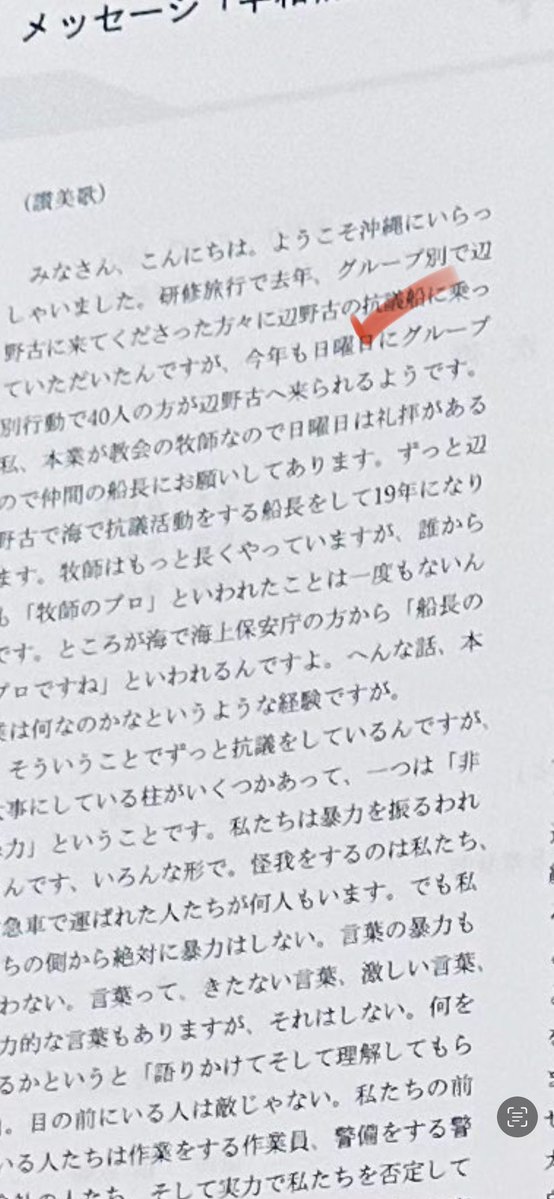 メッセージ「平和
(讃美歌)
みなさん、こんにちは。ようこそ沖縄にいらっ
しゃいました。研修旅行で去年、グループ別で辺
野古に来てくださった方々に辺野古の抗議船に乗っ
ていただいたんですが、今年も日曜日にグループ
別行動で40人の方が辺野古へ来られるようです。
私、本業が教会の牧師なので日曜日は礼拝がある
ので仲間の船長にお願いしてあります。ずっと辺
野古で海で抗議活動をする船長をして19年になり
ます。牧師はもっと長くやっていますが、誰から
も「牧師のプロ」といわれたことは一度もないん
です。ところが海で海上保安庁の方から「船長の
プロですね」といわれるんですよ。へんな話、本
業は何なのかなというような経験ですが。
そういうことでずっと抗議をしているんですが、
大事にしている柱がいくつかあって、一つは「非
暴力」ということです。私たちは暴力を振るわれ
んです、いろんな形で。怪我をするのは私たち、
急車で運ばれた人たちが何人もいます。でも私
ちの側から絶対に暴力はしない。言葉の暴力も
わない。言葉って、きたない言葉、激しい言葉、
力的な言葉もありますが、それはしない。何を
るかというと「語りかけてそして理解してもら
。目の前にいる人は敵じゃない。私たちの前
いる人たちは作業をする作業員、警備をする警
の人たち、そして実力で私たちを否定して